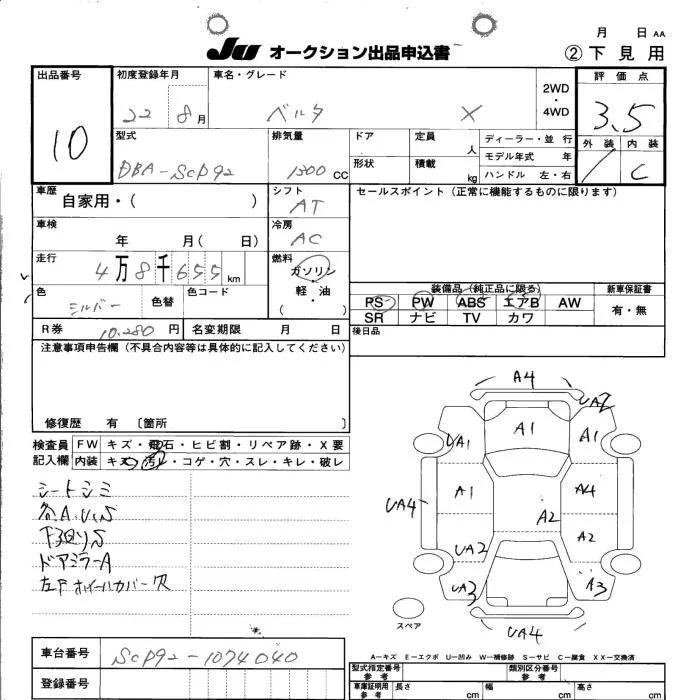 月 日 AA
JU オークション出品申込書
② 下見用
出品番号
10
初度登録年月
22 8月
車名・グレード
ベルタ X
2WD
・
4WD
評価点
3.5
外装 内装
C
型式
DBA-SCP92
排気量
1300 CC
ドア
形状
定員 人
積載 kg
ディーラー・並行
モデル年式 年
ハンドル 左・右
車歴
自家用・( )
シフト
AT
セールスポイント(正常に機能するものに限ります)
車検
年 月( 日)
冷房
AC
走行
4万8千655km
燃料
ガソリン
軽・油
( )
色
シルバー
色替
色コード
装備品(純正品に限る)
新車保証書
PS PW ABS エアB AW
有・無
SR ナビ TV カワ
R券 10,280円
名変期限 月 日
後日品
注意事項申告欄(不具合内容等は具体的に記入してください)
修復歴 有 〔箇所 〕
検査員
記入欄
FW キズ・飛石・ヒビ割・リペア跡・X要
内装 キズ・汚レ・コゲ・穴・スレ・キレ・破レ
シートシミ
各A.U.S
下回りS
ドアミラーA
左F ホイルカバー欠
A4
UA2
UA1
A1
A1
UA4
A1
A4
A2
UA2
A2
UA3
A3
UA4
スペア
A-キズ E-エクボ U-凹み W-補修跡 S-サビ C-腐食 XX-交換済
車台番号
SCP92-1074040
登録番号
型式指定番号
参考
類別区分番号
参考
車庫証明用
参考
長さ cm
幅 cm
高さ cm